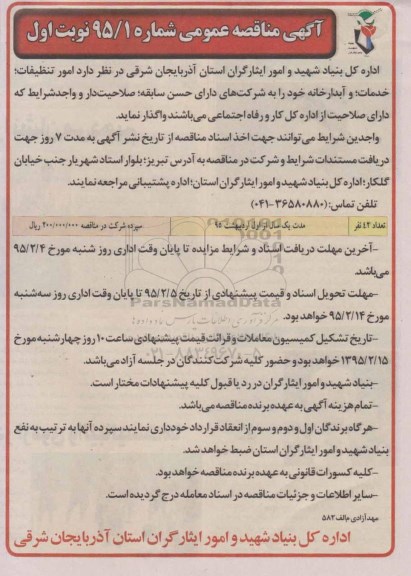 آگهی مناقصه عمومی شماره ۹۵/۱ نوبت اول
اداره کل بنیاد شهید و امور ایثارگران استان آذربایجان شرقی در نظر دارد امور تنظیفات؛
خدمات؛ و آبدارخانه خود را به شرکت‌های دارای حسن سابقه؛ صلاحیت‌دار و واجدشرایط که
دارای صلاحیت از اداره کل کار و رفاه اجتماعی می‌باشند واگذار نماید.
واجدین شرایط می‌توانند جهت اخذ اسناد مناقصه از تاریخ نشر آگهی به مدت ۷ روز جهت
دریافت مستندات شرایط و شرکت در مناقصه به آدرس تبریز؛ بلوار استاد شهریار جنب خیابان
گلکار؛ اداره کل بنیاد شهید و امور ایثارگران استان؛ اداره پشتیبانی مراجعه نمایند.
تلفن تماس: (۳۶۵۸۰۸۸۰-۰۴۱)
تعداد ۴۲ نفر مدت یک سال از اول اردیبهشت ۹۵ سپرده شرکت در مناقصه ۲۰۰/۰۰۰/۰۰۰ ریال
-آخرین مهلت دریافت اسناد و شرایط مزایده تا پایان وقت اداری روز شنبه مورخ ۹۵/۲/۴
می‌باشد.
-مهلت تحویل اسناد و قیمت پیشنهادی از تاریخ ۹۵/۲/۵ تا پایان وقت اداری روز سه‌شنبه
مورخ ۹۵/۲/۱۴ خواهد بود.
ParsNamadData
-تاریخ تشکیل کمیسیون معاملات و قرائت قیمت پیشنهادی ساعت ۱۰ روز چهارشنبه مورخ
۱۳۹۵/۲/۱۵ خواهد بود و حضور کلیه شرکت کنندگان در جلسه آزاد می‌باشد.
-بنیاد شهید و امور ایثارگران در رد یا قبول کلیه پیشنهادات مختار است.
-تمام هزینه آگهی به عهده برنده مناقصه می‌باشد.
-هرگاه برندگان اول و دوم و سوم از انعقاد قرارداد خودداری نمایند سپرده آنها به ترتیب به نفع
بنیاد شهید و امور ایثارگران استان ضبط خواهد شد.
-کلیه کسورات قانونی به عهده برنده مناقصه خواهد بود.
-سایر اطلاعات و جزئیات مناقصه در اسناد معامله درج گردیده است.
مهد آزادی م‌الف ۵۸۲
اداره کل بنیاد شهید و امور ایثارگران استان آذربایجان شرقی